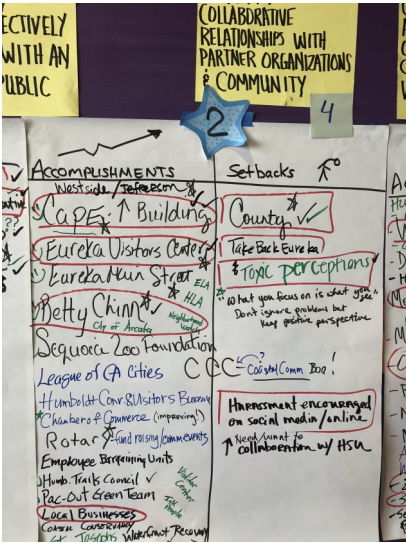 ECTIVELY
WITH AN
PUBLIC
COLLABORATIVE
RELATIONSHIPS WITH
PARTNER ORGANIZATIONS
& COMMUNITY
2
4
ACCOMPLISHMENTS
Westside / Jefferson
CAPE ↑ Building
Eureka Visitors Center
Eureka Main Street
ELA
HLA
Betty Chinn
City of Arcata
Neighborhood Watch
Sequoia Zoo Foundation
League of CA Cities
Humboldt Conv. & Visitors Bureau
Chamber of Commerce (improving!)
Rotary fund raising/comm events
EMPLOYEE Bargaining Units
Humb. Trails Council ✓
Pac-Out Green Team
Visitor Center
LOCAL BUSINESSES
COASTAL CONSERVANCY
St. Josephs Waterfront Recovery
Setbacks
County ✓
Take Back Eureka
& Toxic perceptions
"what you focus on is what you see"
Don't ignore problems but
keep positive perspective
CCC ?
Coastal Comm Boo!
HARASSMENT encouraged
on social media/online
↑ Need/want to
collaboration w/ HSU